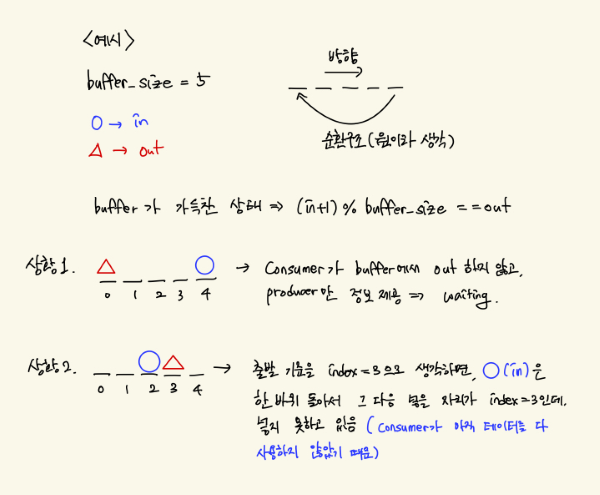 <예시>
buffer_size = 5
방향
○ → in
△ → out
순환구조(원이라 생각)
buffer가 가득찬 상태 ⇒ (in+1) % buffer_size == out
상황1.
0 1 2 3 4
→ Consumer가 buffer에서 out 하지 않고,
producer만 정보 제공 ⇒ waiting.
상황2.
0 1 2 3 4
→ 출발 기준을 index=3으로 생각하면, ○(in)은
한 바퀴 돌아서 그 다음 넣을 자리가 index=3인데,
넣지 못하고 있음 (Consumer가 아직 데이터를 다
사용하지 않았기 때문)